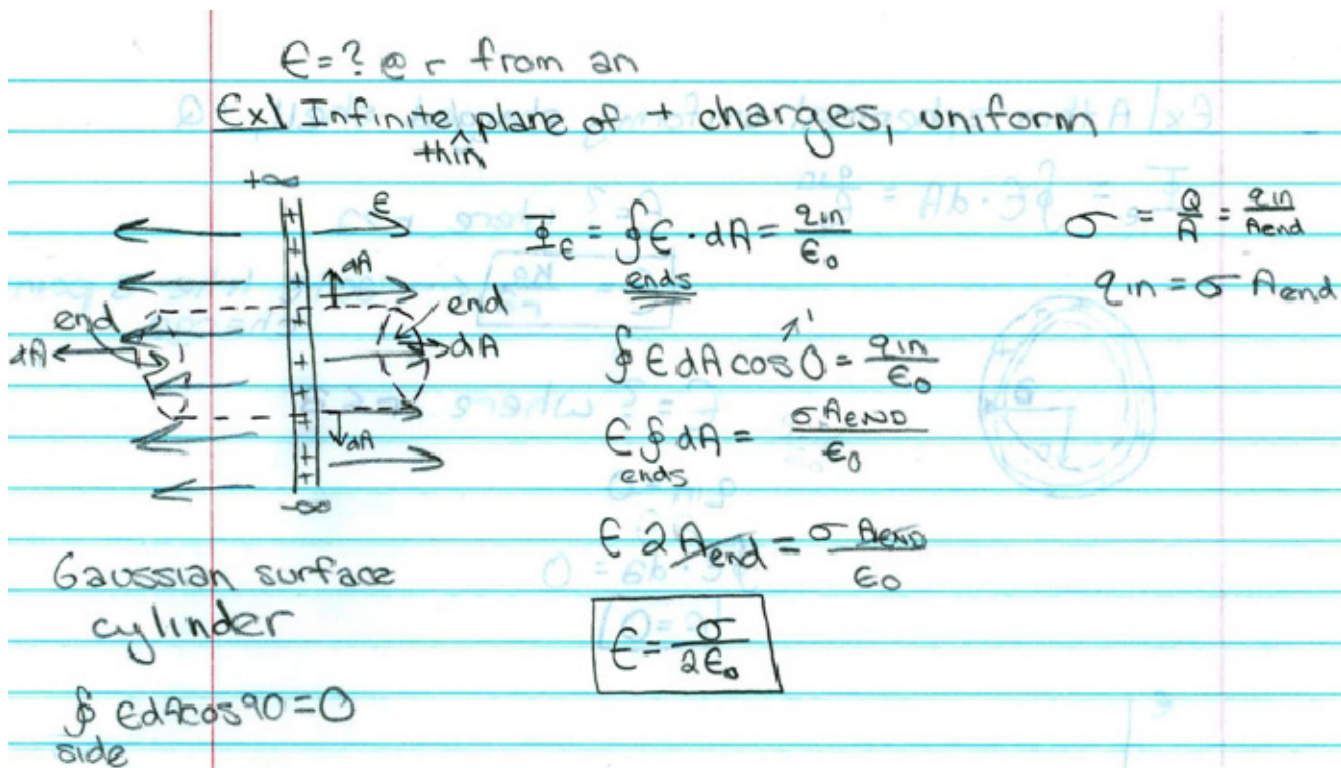 E = ? @ r from an
Ex\ Infinite thin plane of + charges, uniform
+∞
E
dA
end
end
dA
dA
dA
-∞
Gaussian surface
cylinder
∮ E dA cos 90 = 0
side
Φ_E = ∮ E · dA = q_in / ε₀
ends
∮ E dA cos 0 = q_in / ε₀
1
E ∮ dA = σ A_END / ε₀
ends
E 2 A_end = σ A_END / ε₀
E = σ / 2ε₀
σ = Q / A = q_in / A_end
q_in = σ A_end